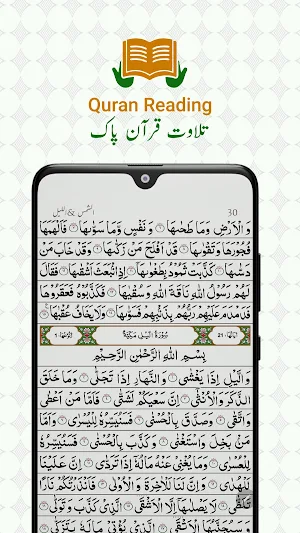 Quran Reading
تلاوت قرآن پاک
الشمس ۹۱ اللیل
30
وَ الْاَرْضِ وَمَا طَحٰىهَا ۞ وَ نَفْسٍ وَّمَا سَوّٰىهَا ۞ فَاَلْهَمَهَا
فُجُوْرَهَا وَتَقْوٰىهَا ۞ قَدْ اَفْلَحَ مَنْ زَكّٰىهَا ۞ وَقَدْ خَابَ مَنْ
دَسّٰىهَا ۞ كَذَّبَتْ ثَمُوْدُ بِطَغْوٰىهَا ۞ اِذِ انْۢبَعَثَ اَشْقٰىهَا ۞ فَقَالَ
لَهُمْ رَسُوْلُ اللّٰهِ نَاقَةَ اللّٰهِ وَ سُقْيٰهَا ۞ فَكَذَّبُوْهُ فَعَقَرُوْهَا
فَدَمْدَمَ عَلَيْهِمْ رَبُّهُمْ بِذَنْۢبِهِمْ فَسَوّٰىهَا ۞ وَلَا يَخَافُ عُقْبٰهَا ۞
اٰيَاتُهَا 21 سُوْرَةُ الَّيْلِ مَكِّيَّةٌ رُكُوْعُهَا 1
بِسْمِ اللّٰهِ الرَّحْمٰنِ الرَّحِيْمِ
وَ الَّيْلِ اِذَا يَغْشٰى ۞ وَالنَّهَارِ اِذَا تَجَلّٰى ۞ وَمَا خَلَقَ
الذَّكَرَ وَالْاُنْثٰٓى ۞ اِنَّ سَعْيَكُمْ لَشَتّٰى ۞ فَاَمَّا مَنْ اَعْطٰى
وَاتَّقٰى ۞ وَ صَدَّقَ بِالْحُسْنٰى ۞ فَسَنُيَسِّرُهٗ لِلْيُسْرٰى ۞ وَاَمَّا
مَنْۢ بَخِلَ وَاسْتَغْنٰى ۞ وَ كَذَّبَ بِالْحُسْنٰى ۞ فَسَنُيَسِّرُهٗ
لِلْعُسْرٰى ۞ وَمَا يُغْنِيْ عَنْهُ مَالُهٗٓ اِذَا تَرَدّٰى ۞ اِنَّ عَلَيْنَا
لَلْهُدٰى ۞ وَ اِنَّ لَنَا لَلْاٰخِرَةَ وَ الْاُوْلٰى ۞ فَاَنْذَرْتُكُمْ نَارًا
تَلَظّٰى ۞ لَا يَصْلٰىهَآ اِلَّا الْاَشْقَى ۞ الَّذِيْ كَذَّبَ وَ تَوَلّٰى ۞
وَ سَيُجَنَّبُهَا الْاَتْقَى ۞ الَّذِيْ يُؤْتِيْ مَالَهٗ يَتَزَكّٰى ۞